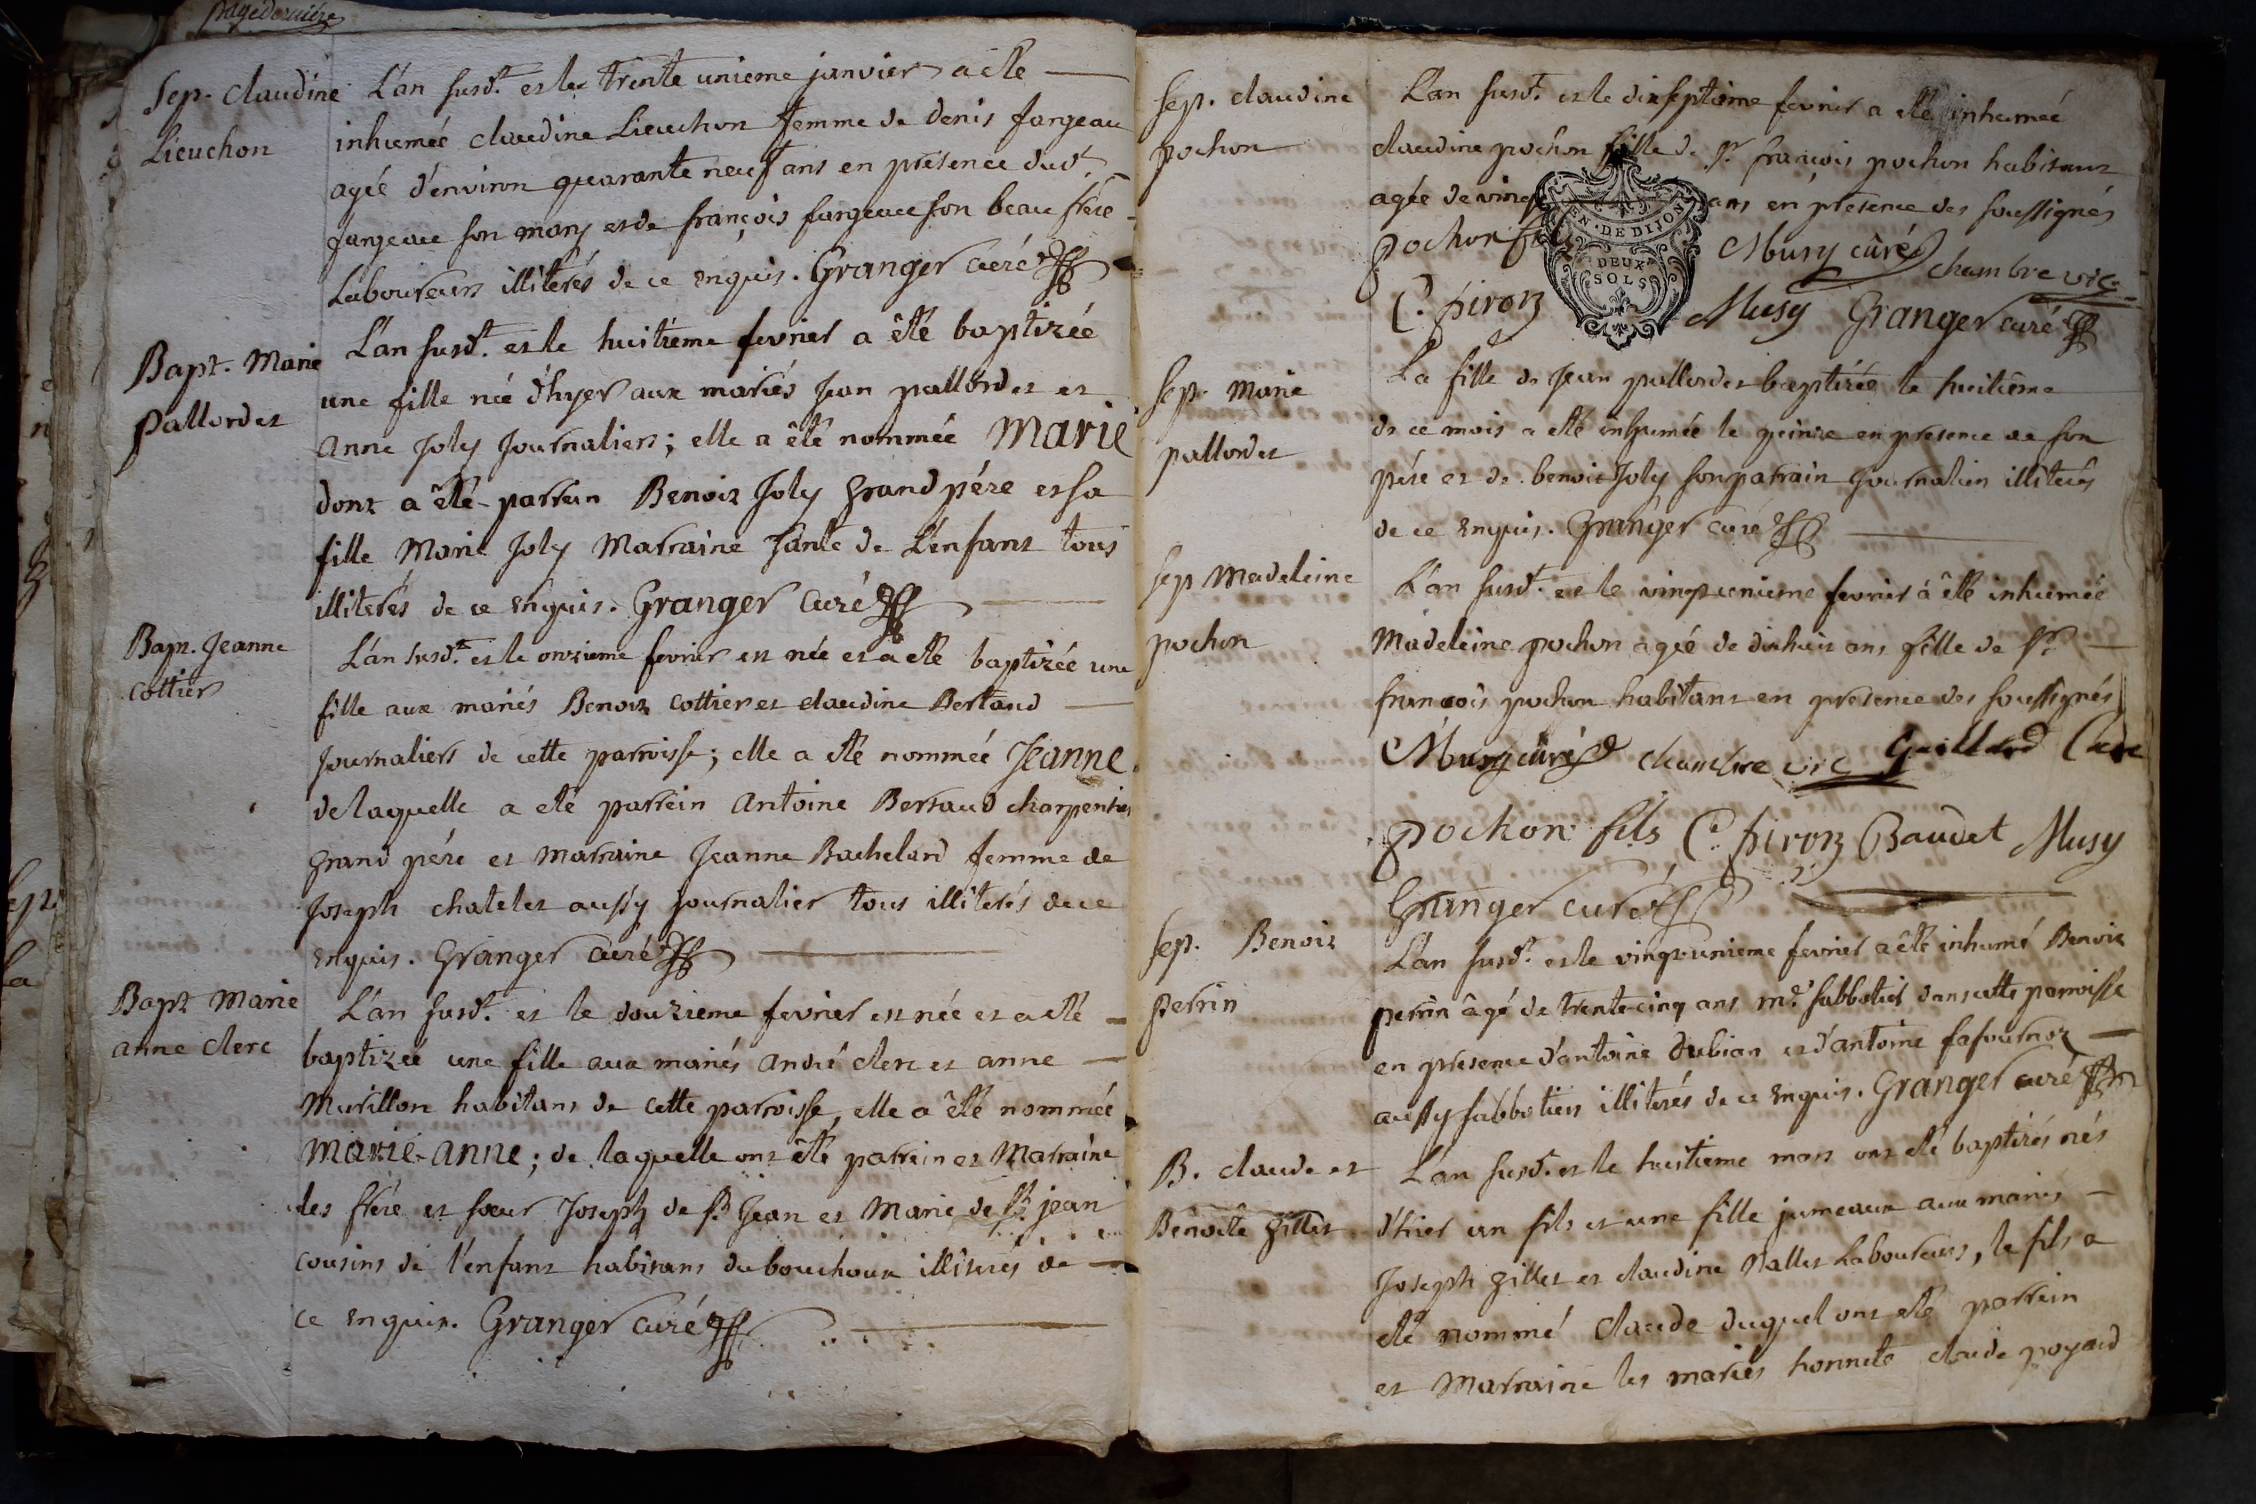 page dernière
Sep. claudine
Lieuchon
L'an susd.t et le trente unieme janvier a été
inhumée claudine Lieuchon femme de denis fargeau
agée d'environ quarante neuf ans en présence dud.t
fargeau son mary et de françois fargeau son beau frére
Laboureurs illiterés de ce enquis. Granger curé
Bapt. Marie
pallordet
L'an susd.t et le huitiéme fevrier a été baptizée
une fille née d'hyer aux mariés Jean pallordet et
anne Joly Journaliers; elle a êté nommée Marie
dont a êté parrein Benoit Joly grand pére et sa
fille Marie Joly Marraine tante de L'enfant tous
illiterés de ce enquis. Granger curé
Bapt. Jeanne
cottier
L'an susd.t et le onzieme fevrier est née et a été baptizée une
fille aux mariés Benoit cottier et claudine Bertaud
Journaliers de cette parroisse; elle a été nommée Jeanne
de laquelle a eté parrein antoine Bertaud charpentier
grand pére et marraine Jeanne Bachelard femme de
Joseph chatelet aussy journalier tous illiterés de ce
enquis. Granger curé
Bapt Marie
anne clerc
L'an susd.t et le douzieme fevrier est née et a eté
baptizeé une fille aux mariés andré clerc et anne
Murillon habitans de cette parroisse, elle a êté nommée
Marie-anne; de laquelle ont êté parrein et Marraine
les frére et soeur Joseph de s.t Jean et Marie de s.t jean
cousins de l'enfant habitans du bouchoux illiterés de
ce enquis. Granger curé
Sep. claudine
pochon
L'an susd.t et le dixseptiéme fevrier a été inhumée
claudine pochon fille de s.r françois pochon habitant
agée de vingt ans en présence des soussignés
pochon fils Mury curé chambre vic.
C. piron Musy Granger curé
EN. DE DIJON
DEUX
SOLS
Sep. Marie
pallordet
La fille de Jean pallordet baptizée le huitiême
de ce mois a eté inhumée le quinze en présence de son
pére et de benoit Joly son parrain journalier illiterés
de ce enquis. Granger curé
Sep Madeleine
pochon
L'an susd.t et le vingt unieme fevrier a êté inhumée
Madeleine pochon agée de dixhuit ans fille de s.r
francois pochon habitant en presence des soussignés
Mury curé chambre vic Guillard Curé
pochon fils C. piron Baudet Musy
Granger curé
Sep. Benoit
perrin
L'an susd.t et le vingt-unieme fevrier a êté inhumé Benoit
perrin âgé de trente-cinq ans m.d sabbotier dans cette parroisse
en presence d'antoine dubian et d'antoine fafournoz
aussy sabbotiers illiterés de ce enquis. Granger curé
B. claude et
Benoite gillet
L'an susd.t et le huitieme mars ont eté baptizés nés
d'hier un fils et une fille jumeaux aux mariés
Joseph gillet et claudine Nallet Laboureurs, le fils a
eté nommé claude duquel ont eté parrein
et Marraine les mariés honnete claude poyard